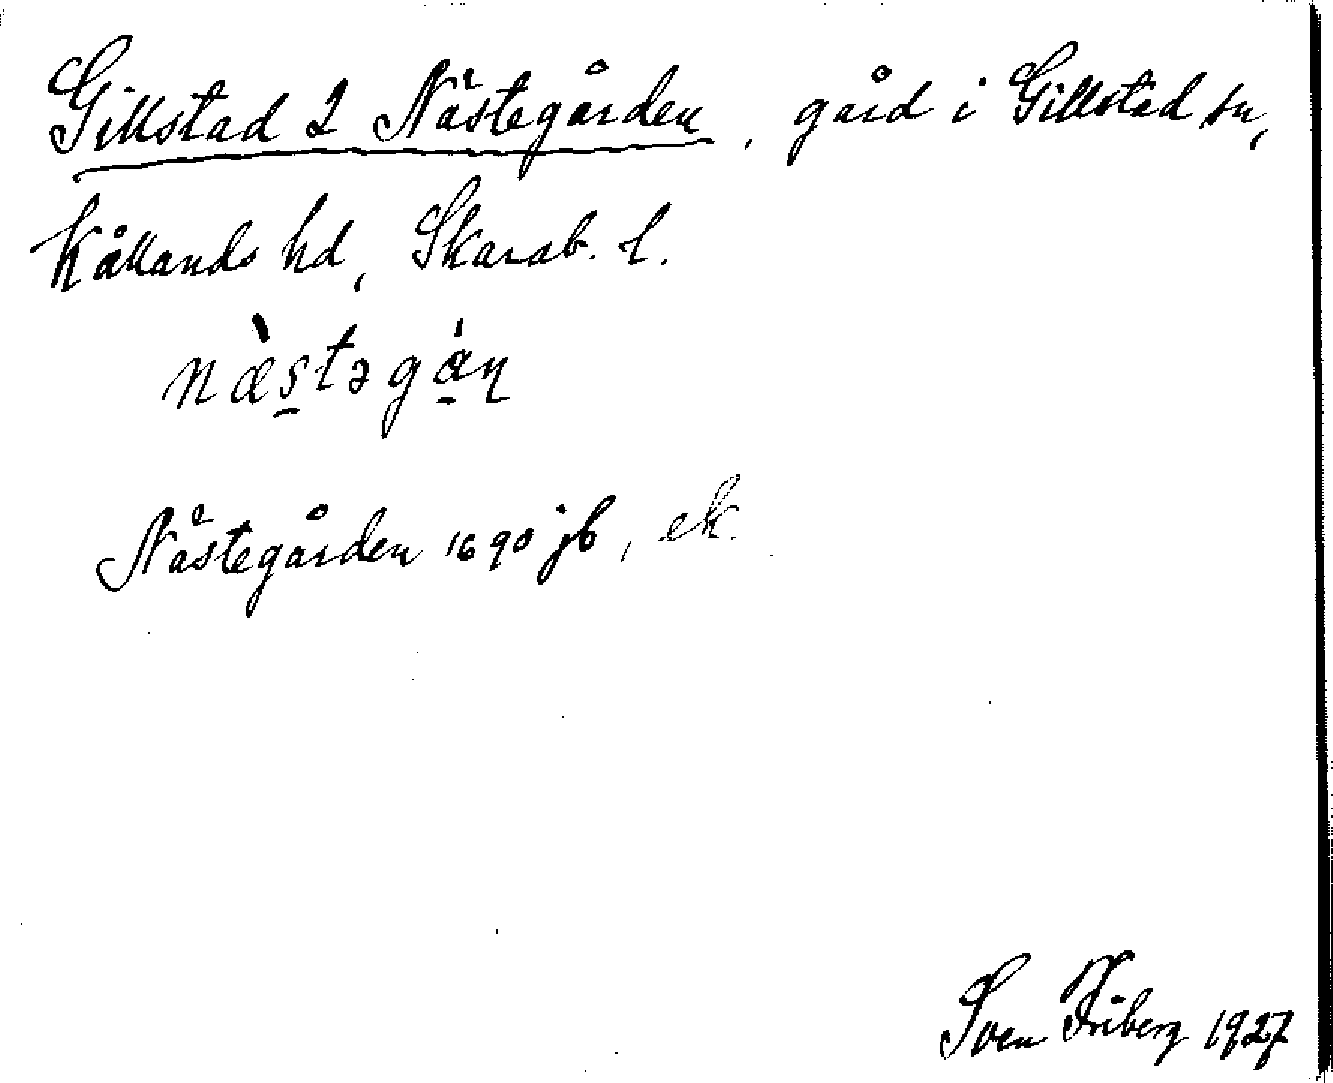 Gillstad 2 Nästegården, gård i Gillstad sn,
Kållands hd, Skarab. l.
næ̀s̱təgɑ̱̍ɳ
Nästegården 1690 jb, ek.
Sven Friberg 1927